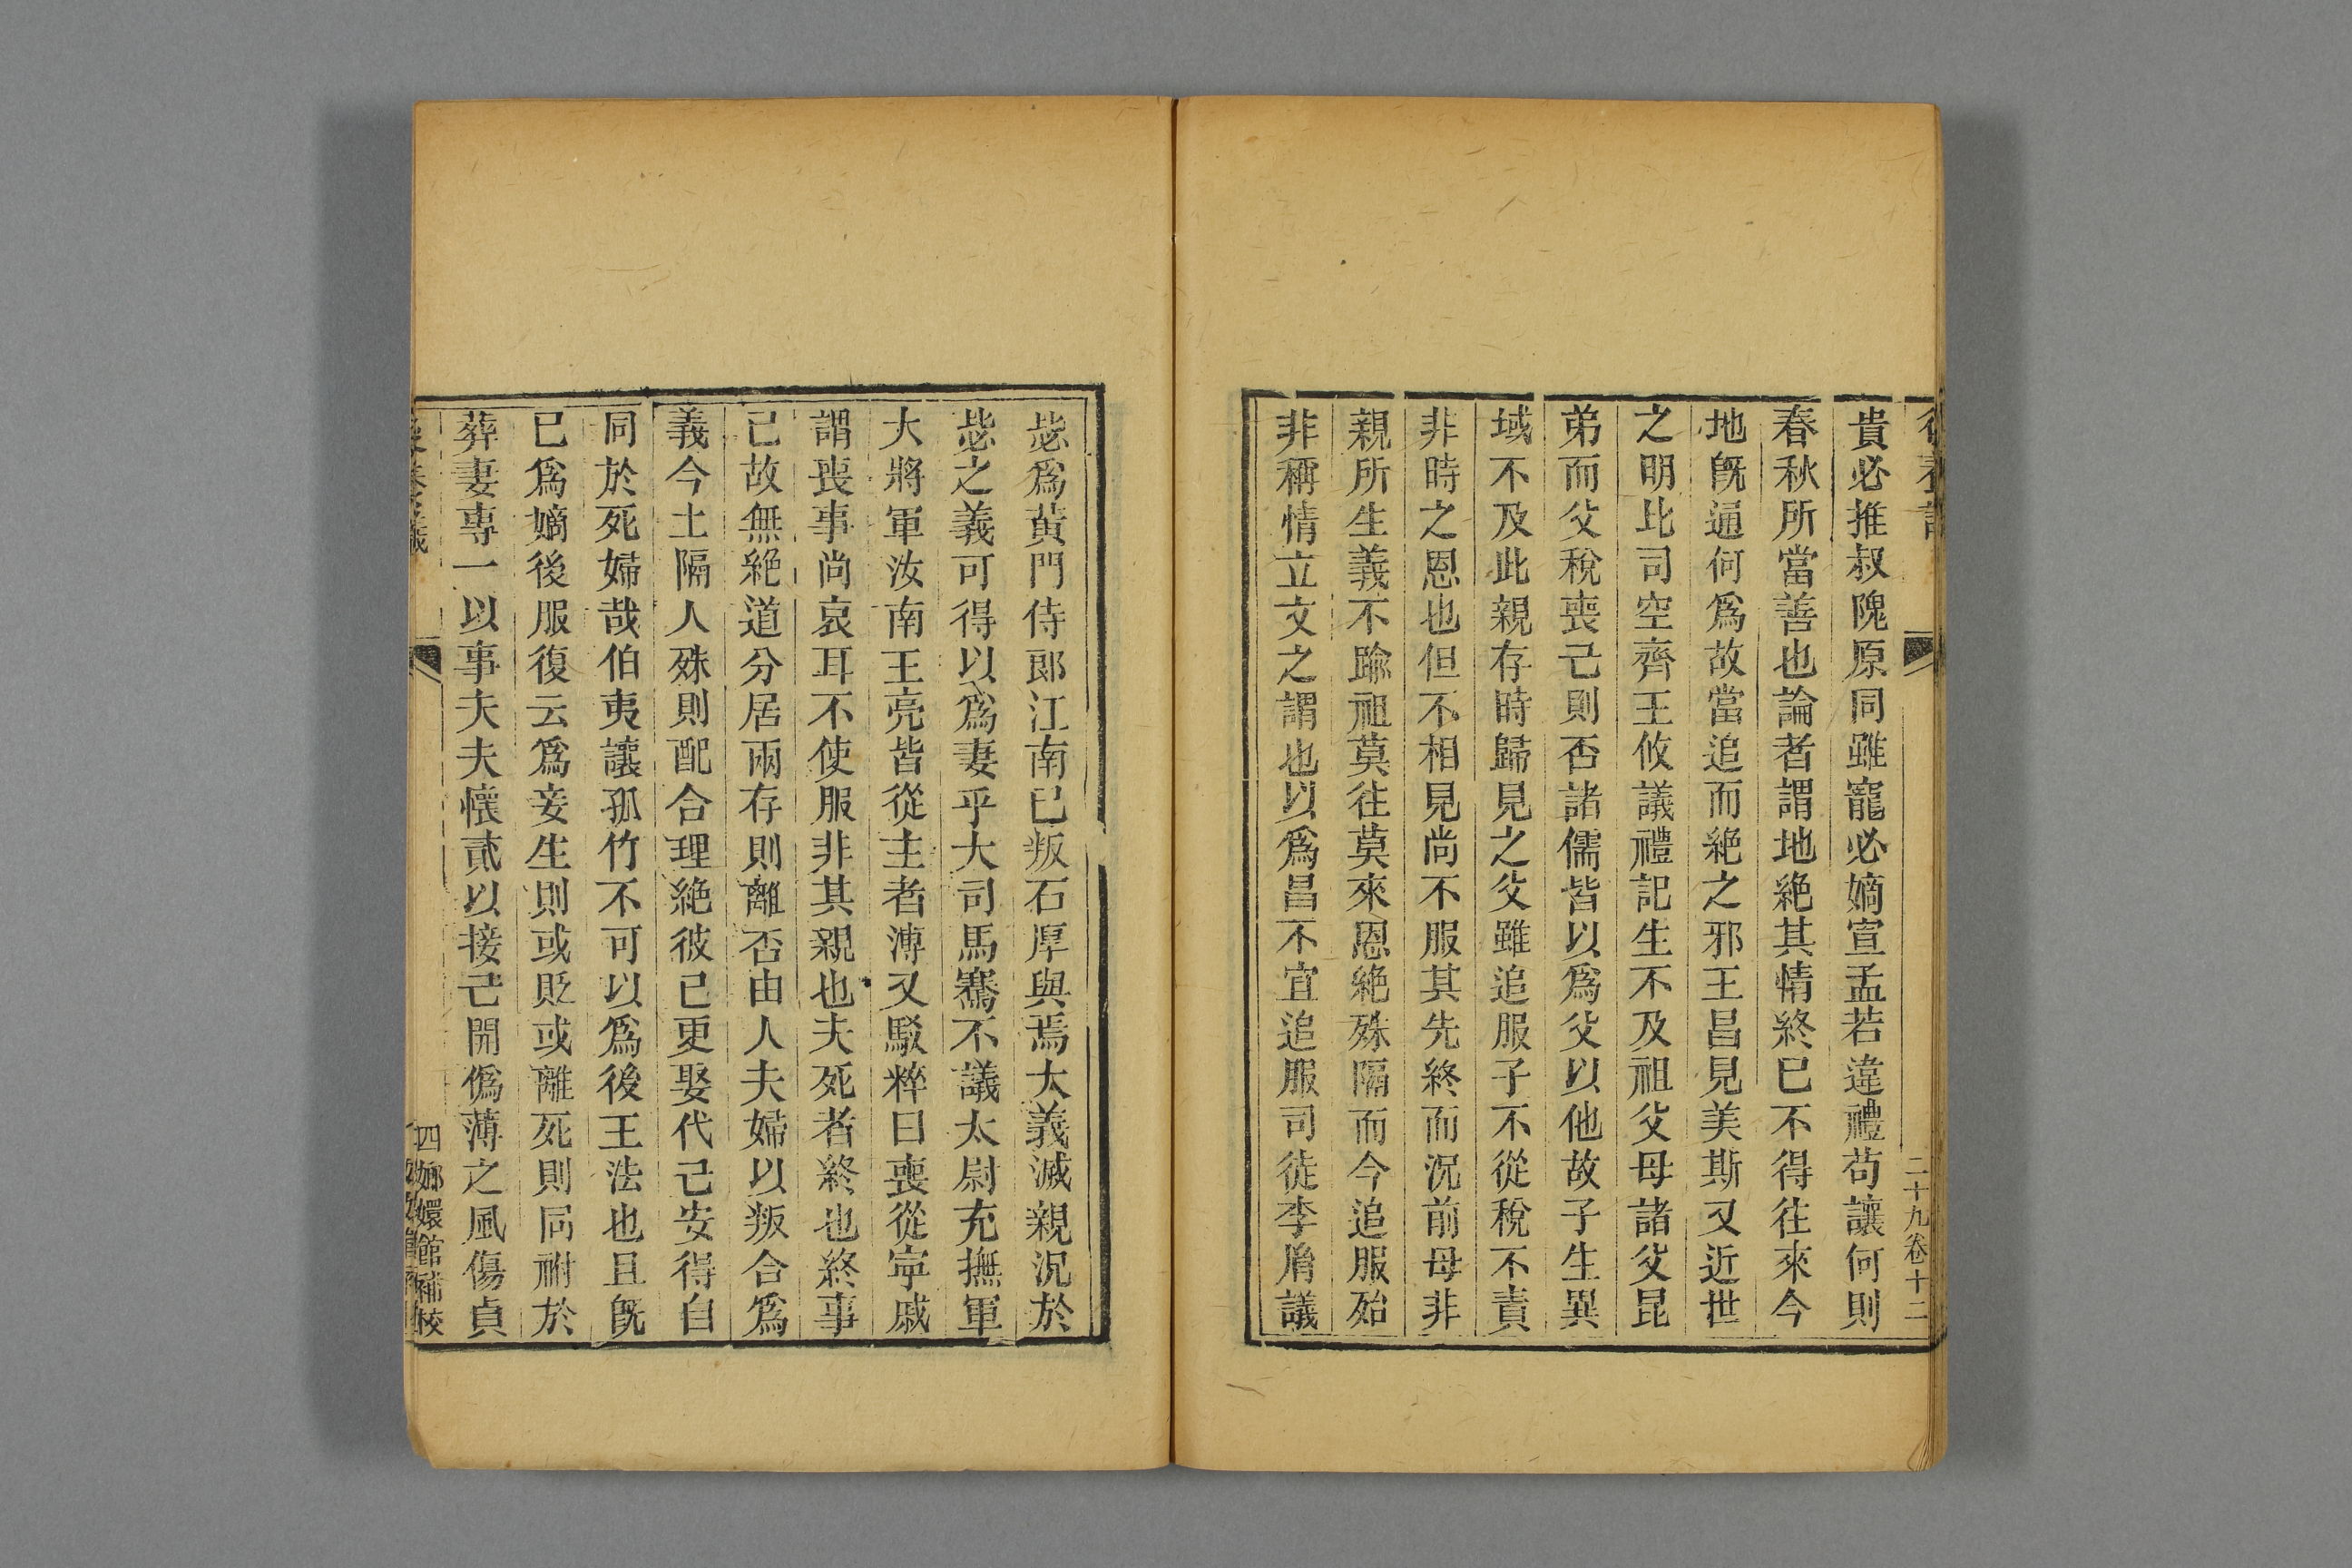 二十九卷十二
貴必推叔隗原同雖寵必嫡宣孟若違禮苟讓何則
春秋所當善也論者謂地絶其情終已不得往來今
地旣通何爲故當追而絶之邪王昌見美斯又近世
之明比司空齊王攸議禮記生不及祖父母諸父昆
弟而父稅喪己則否諸儒皆以爲父以他故子生異
域不及此親存時歸見之父雖追服子不從稅不責
非時之恩也但不相見尚不服其先終而況前母非
親所生義不踰祖莫往莫來恩絶殊隔而今追服殆
非稱情立文之謂也以爲昌不宜追服司徒李胤議
毖爲黃門侍郎江南已叛石厚與焉大義滅親況於
毖之義可得以爲妻乎大司馬騫不議太尉充撫軍
大將軍汝南王亮皆從主者溥又駁粹曰喪從寧戚
謂喪事尚哀耳不使服非其親也夫死者終也終事
已故無絶道分居兩存則離否由人夫婦以叛合爲
義今土隔人殊則配合理絶彼已更娶代己安得自
同於死婦哉伯夷讓孤竹不可以爲後王法也且旣
已爲嫡後服復云爲妾生則或貶或離死則同祔於
葬妻專一以事夫夫懷貳以接己開僞薄之風傷貞
四 嫏嬛館補校